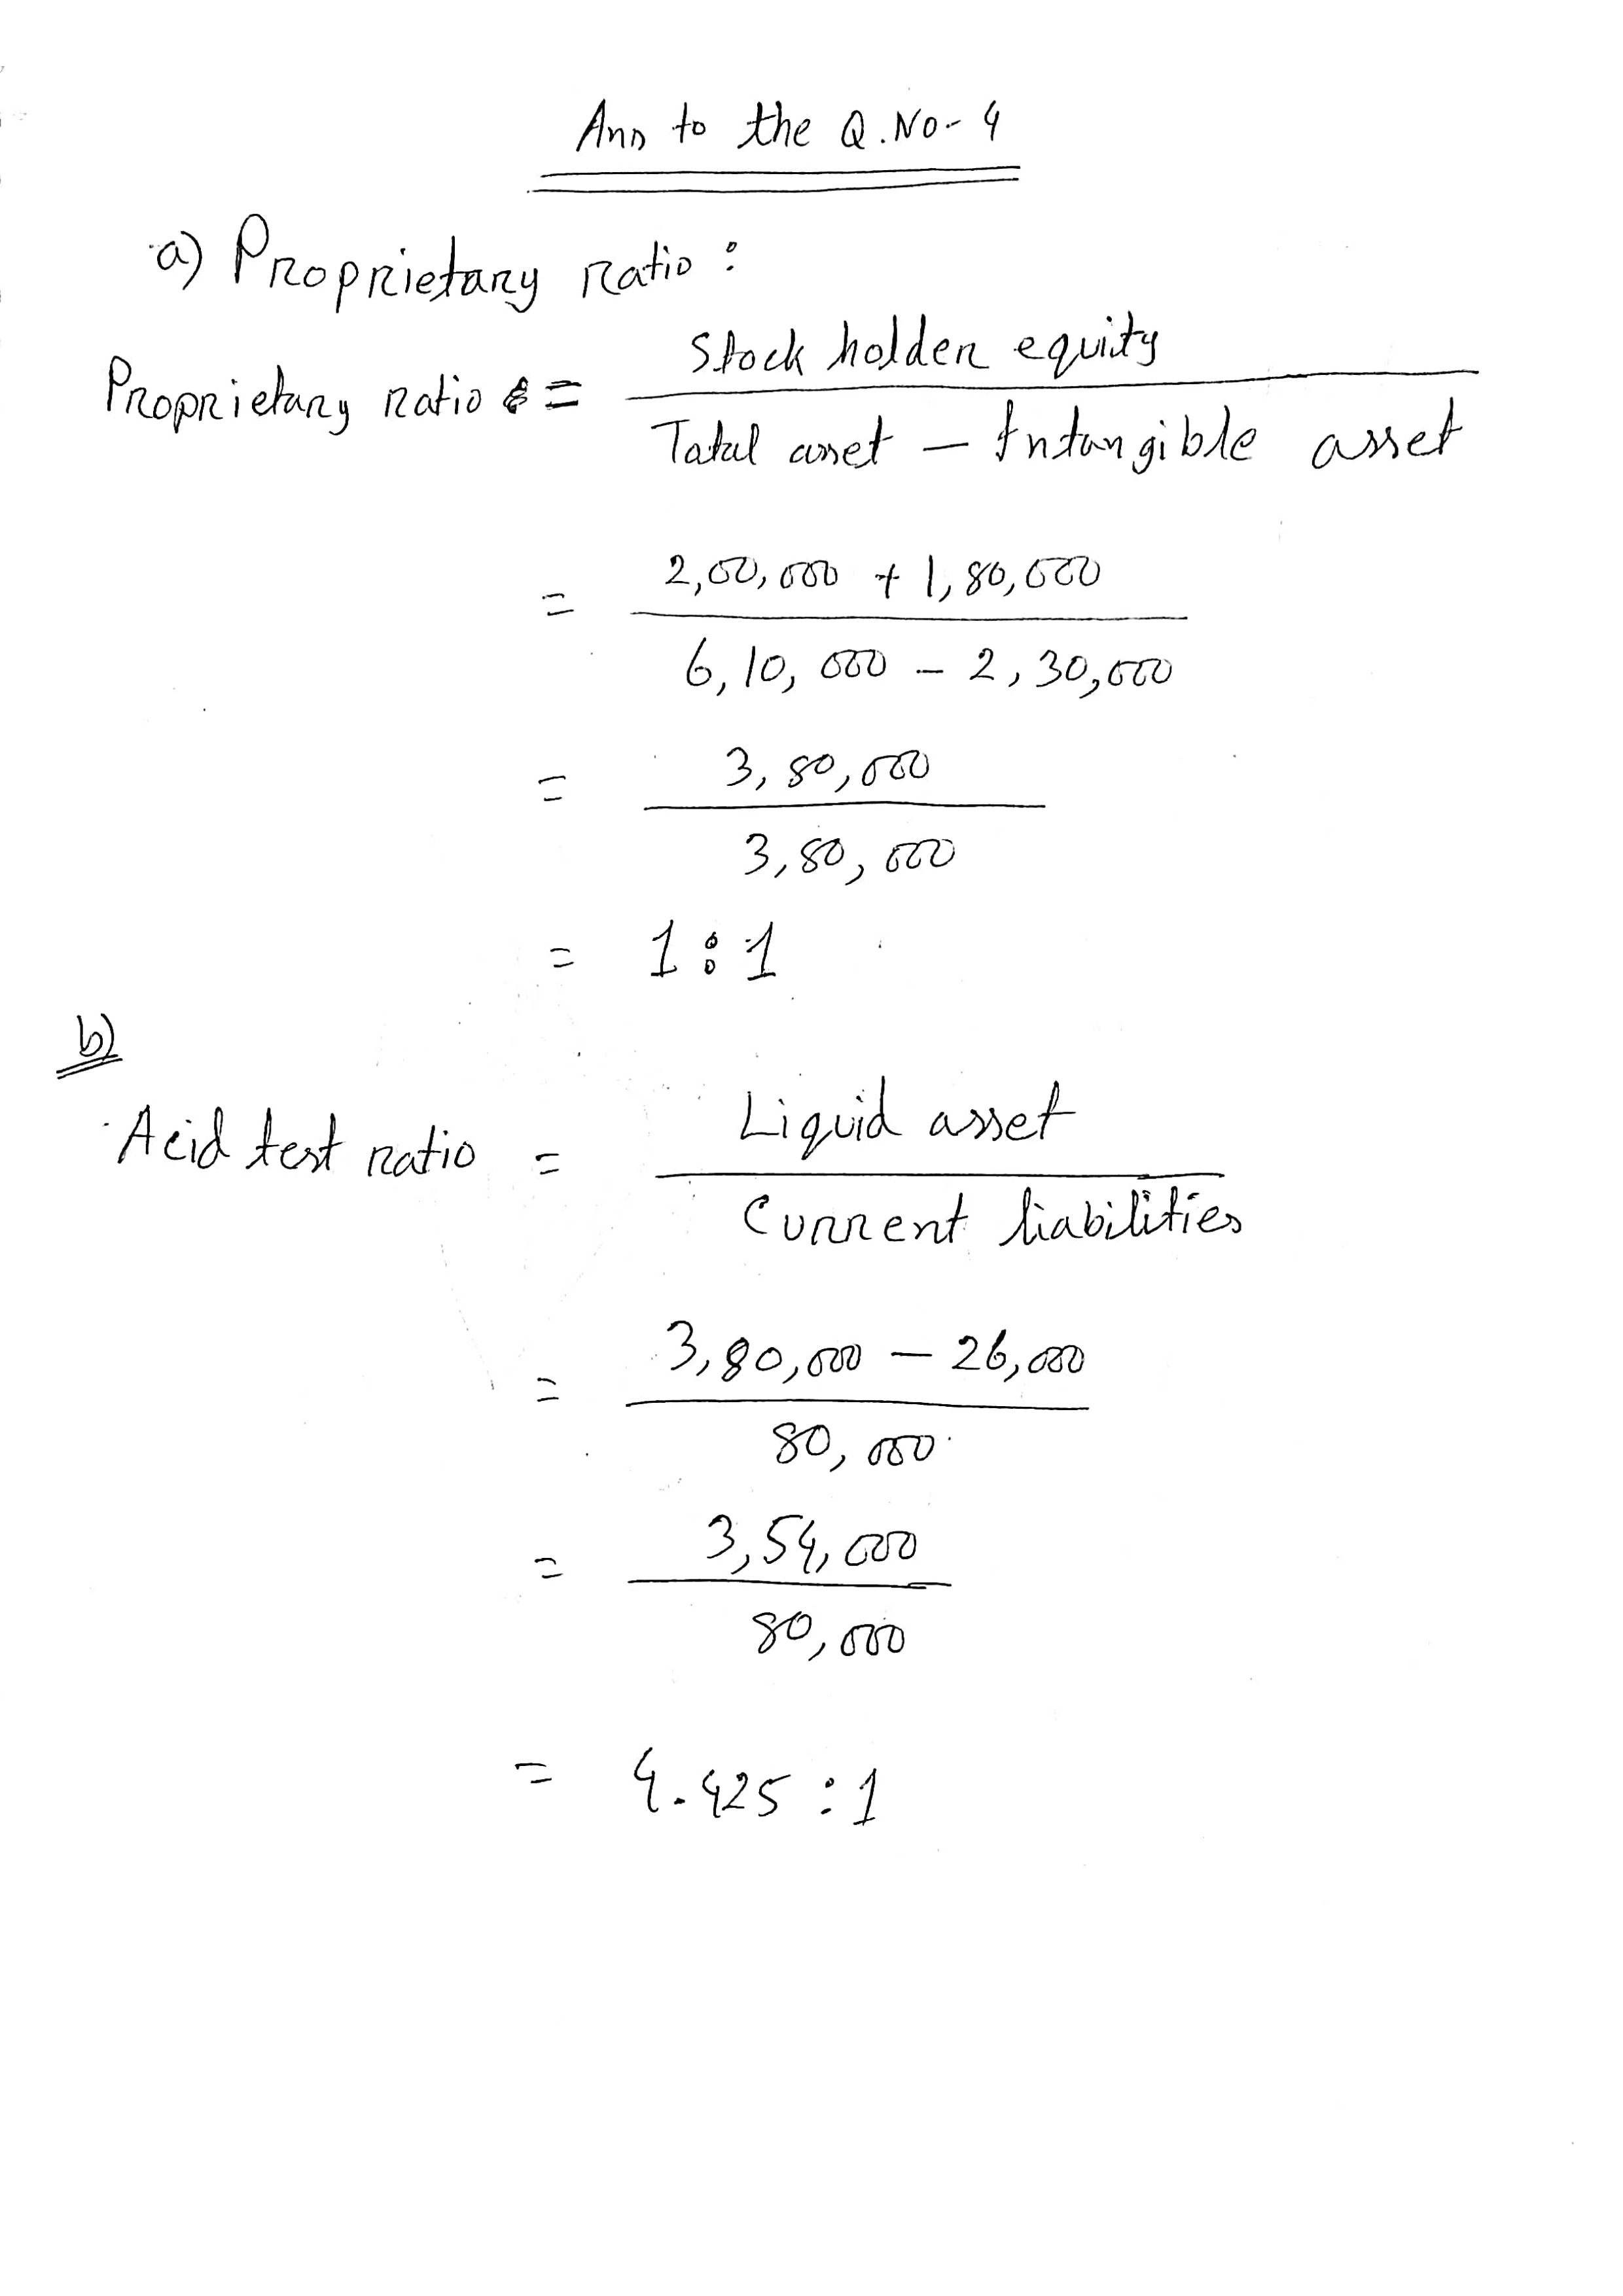 Ans to the Q.No-4
a) Proprietary ratio :
Proprietary ratio = Stock holder equity
Total asset – Intangible asset
= 2,00,000 + 1,80,000
6,10,000 – 2,30,000
= 3,80,000
3,80,000
= 1:1
b)
Acid test ratio = Liquid asset
Current liabilities
= 3,80,000 – 26,000
80,000
= 3,54,000
80,000
= 4.425 : 1